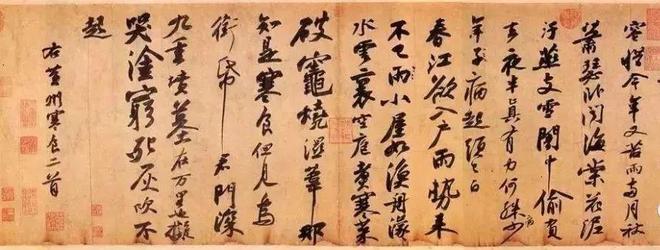 容惜今年又苦雨兩月秋
蕭瑟卧聞海棠花泥
汙燕支雪闇中偷負
去夜半真有力何殊少
年子病起頭已白
春江欲入户雨勢来
不已雨小屋如漁舟濛濛
水雲裏空庖煮寒菜
破竈燒濕葦那
知是寒食但見烏
銜帋君門深
九重墳墓在万里也擬
哭塗窮死灰吹不
起
右黄州寒食二首